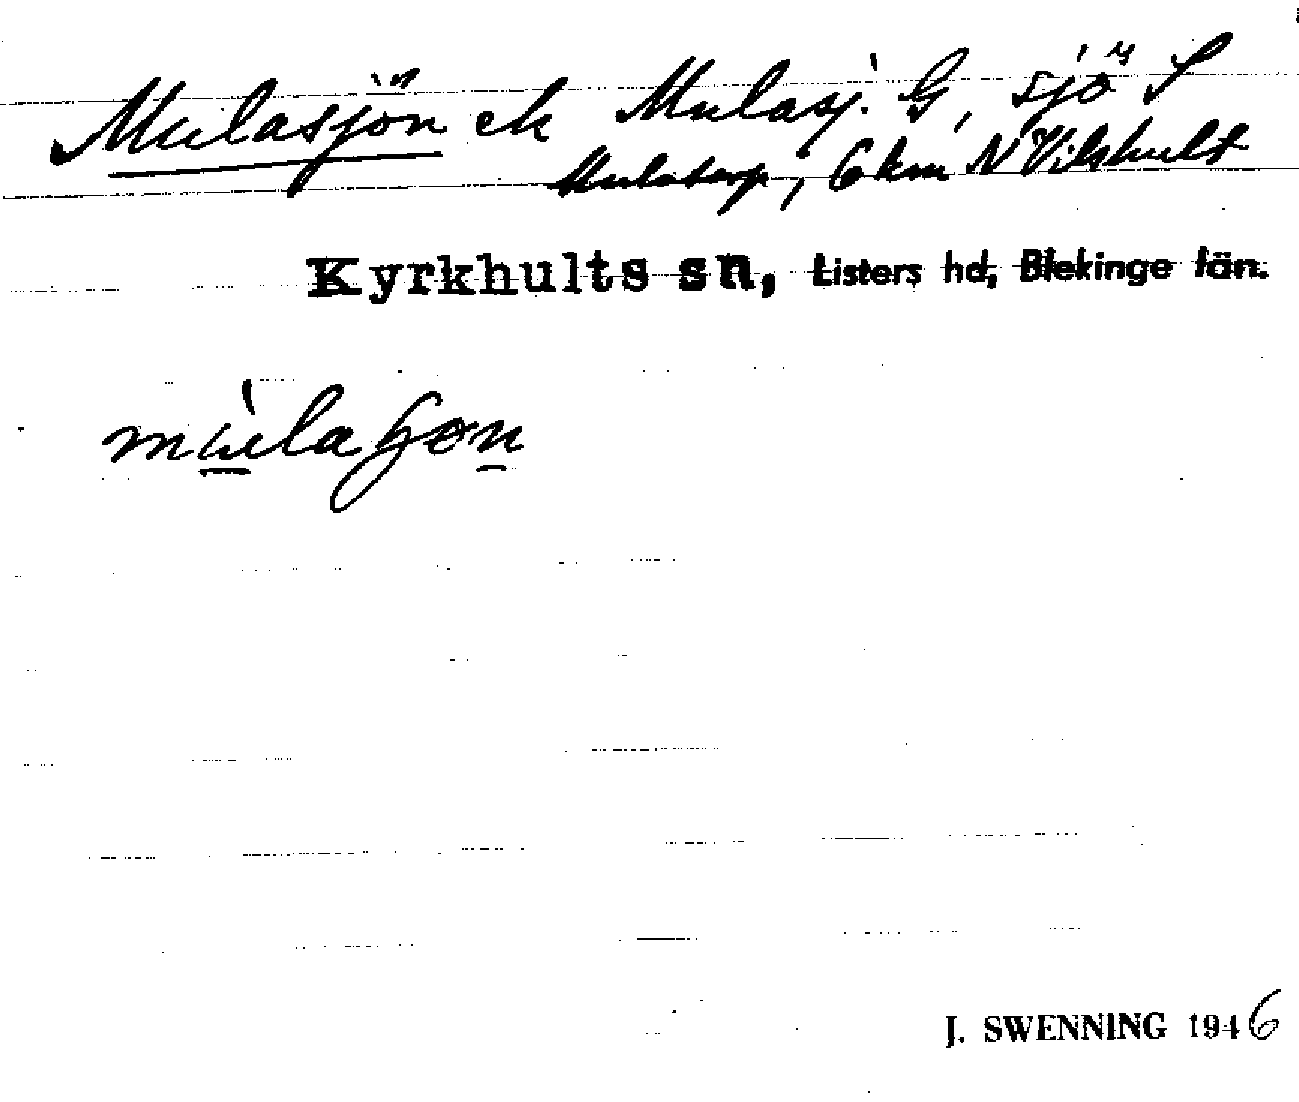 Mulasjön ek Mulasj. G, sjö S
Mulatorp, 6 km N Vilshult
Kyrkhults sn, Listers hd, Blekinge län.
J. SWENNING 1946